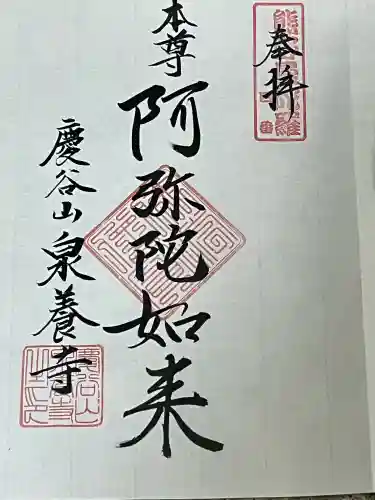 奉拝
本尊
阿弥陀如来
慶谷山泉養寺